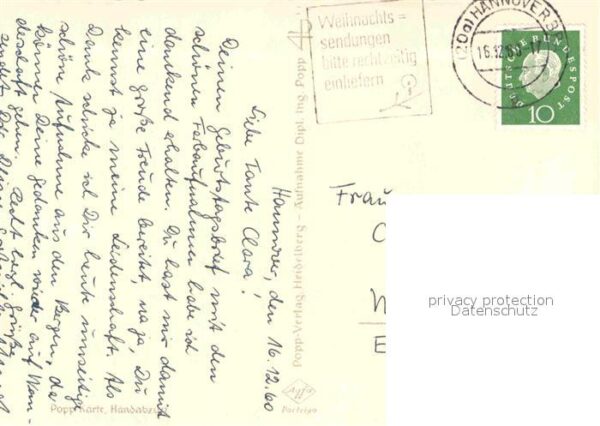 Hannover, den 16.12.60
Liebe Tante Clara!
Deinen Geburtstagsbrief mit den
schönen Farbaufnahmen habe ich
dankend erhalten. Du hast mir damit
eine große Freude bereitet, na ja, Du
kennst ja meine Leidenschaft. Als
Dank schicke ich Dir heute umseitige
schöne Aufnahme aus den Bergen, da
können Deine Gedanken wieder auf Wan-
derschaft gehen. Recht herzl. Grüße
Popp-Karte, Handabz
Popp-Verlag, Heidelberg - Aufnahme Dipl. Ing. Popp
Portriga
Weihnachts=
sendungen
bitte rechtzeitig
einliefern
(20a) HANNOVER
16.12.60
DEUTSCHE BUNDESPOST
10
Frau
privacy protection
Datenschutz